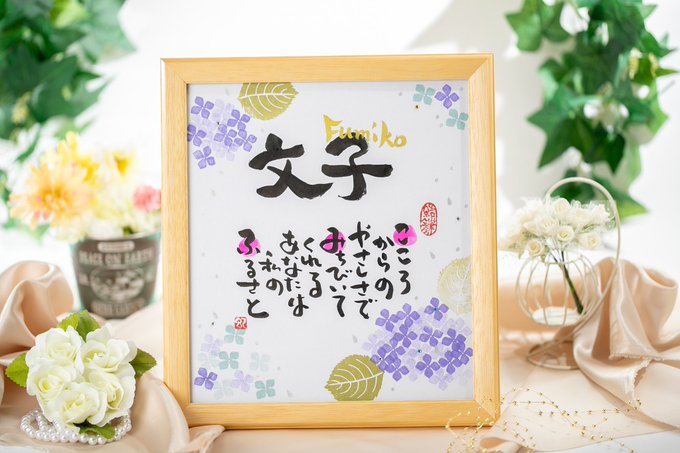 Fumiko
文子
こころ
からの
やさしさで
みちびいて
くれる
あなたは
私の
ふるさと
ON EARTH